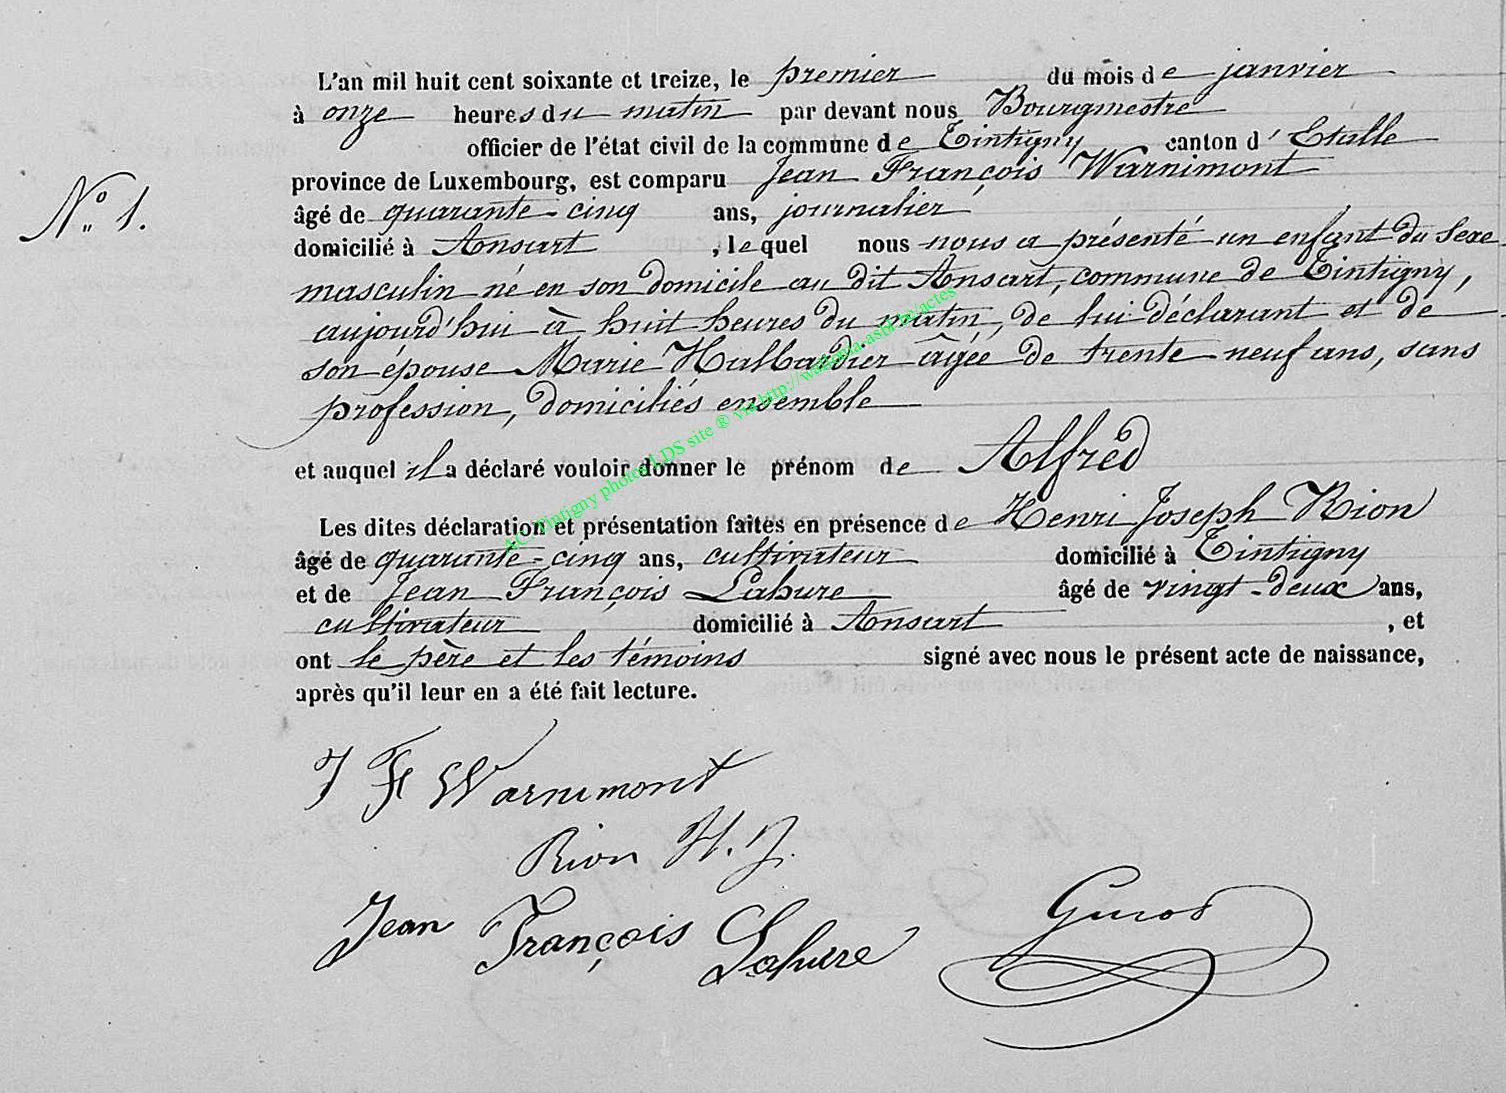 L'an mil huit cent soixante et treize, le premier du mois de janvier
à onze heures du matin par devant nous Bourgmestre
officier de l'état civil de la commune de Tintigny canton d' Etalle
province de Luxembourg, est comparu Jean François Warnimont
N° 1.
âgé de quarante-cinq ans, journalier
domicilié à Ansart, lequel nous nous a présenté un enfant du sexe
masculin né en son domicile au dit Ansart, commune de Tintigny,
aujourd'hui à huit heures du matin, de lui déclarant et de
son épouse Marie Halbardier âgée de trente neuf ans, sans
profession, domiciliés ensemble
et auquel il a déclaré vouloir donner le prénom de Alfred
Les dites déclaration et présentation faites en présence de Henri Joseph Rion
âgé de quarante-cinq ans, cultivateur domicilié à Tintigny
et de Jean François Lahure âgé de vingt-deux ans,
cultivateur domicilié à Ansart, et
ont le père et les témoins signé avec nous le présent acte de naissance,
après qu'il leur en a été fait lecture.
AC Tintigny photos LDS site ® via http://wallonia-asbl.be/actes
J F Warnimont
Rion H. J.
Jean François Lahure